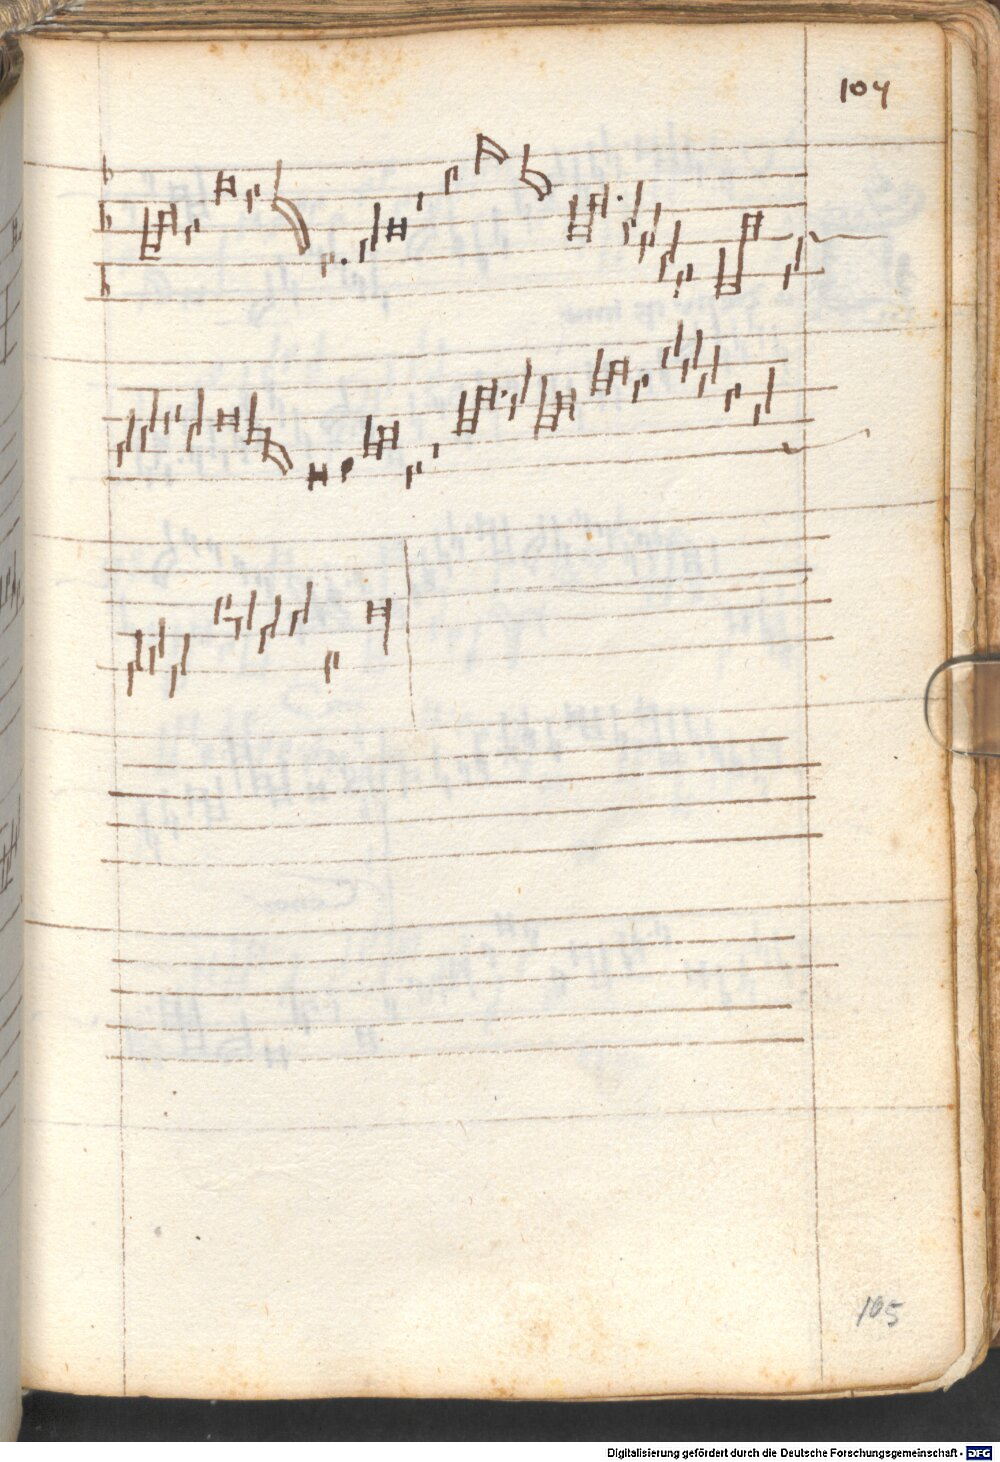 104
105
Digitalisierung gefördert durch die Deutsche Forschungsgemeinschaft - DFG